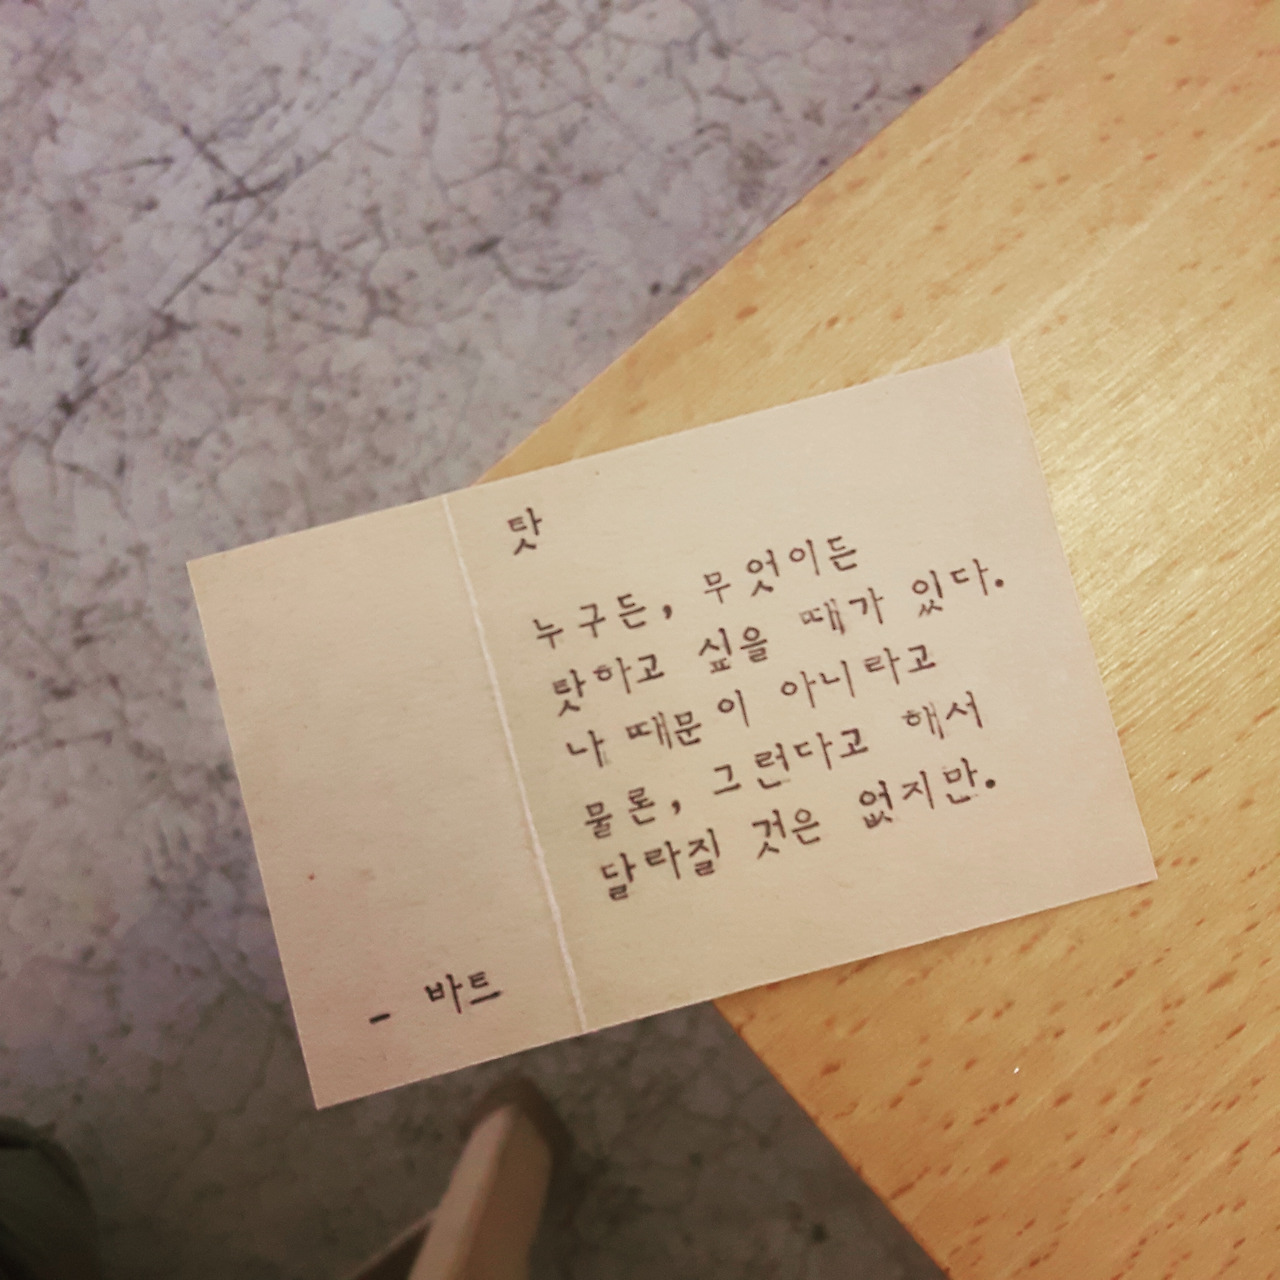 탓
누구든, 무엇이든
탓하고 싶을 때가 있다.
나 때문이 아니라고
물론, 그런다고 해서
달라질 것은 없지만.
- 바트